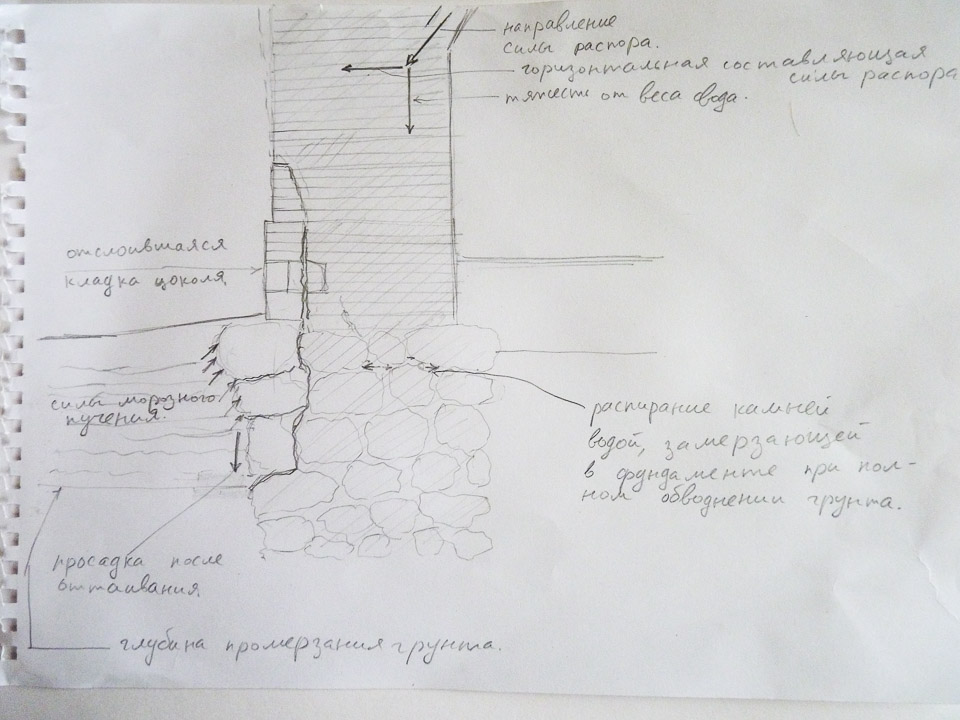 направление
силы распора.
горизонтальная составляющая
силы распора
тяжесть от веса свода.
отслоившаяся
кладка цоколя
силы морозного
пучения.
распирание камней
водой, замерзающей
в фундаменте при пол-
ном обводнении грунта.
просадка после
оттаивания
глубина промерзания грунта.